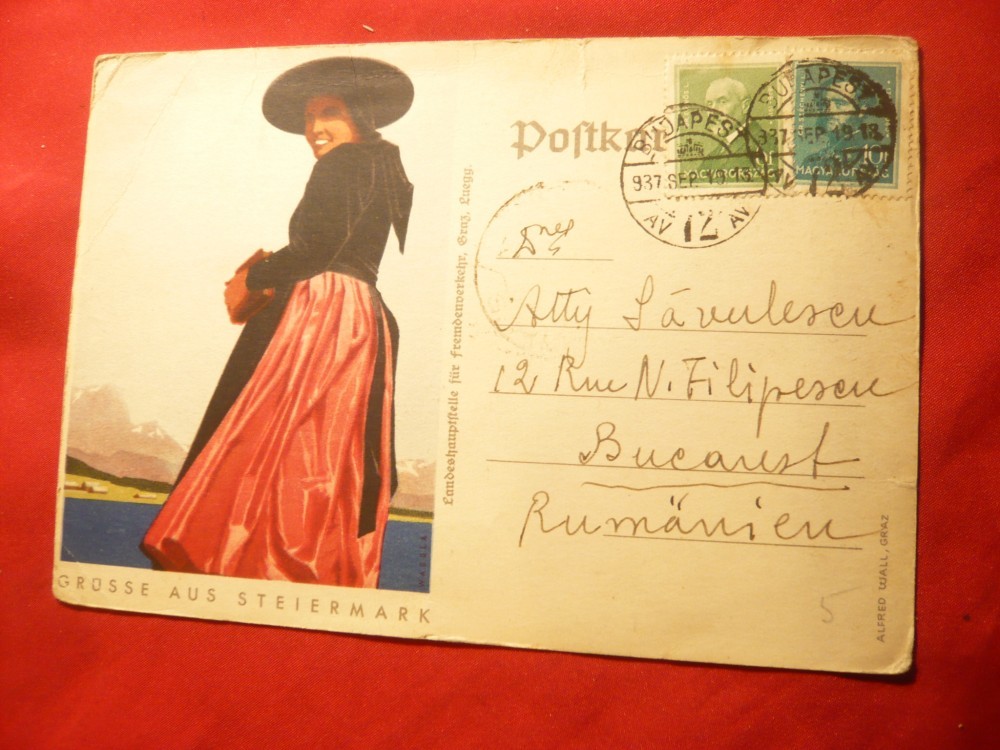 Postkar
BUDAPEST
937.SEP.19.18
AV 12 AV
BUDAPEST
937.SEP.19.18
12
MAGYARORSZÁG
10f
MAGYARORSZÁG
Atty Săvulescu
12 Rue N. Filipescu
Bucarest
Rumänien
Landeshauptstelle für Fremdenverkehr, Graz, Luegg.
GRÜSSE AUS STEIERMARK
ALFRED WALL, GRAZ
5